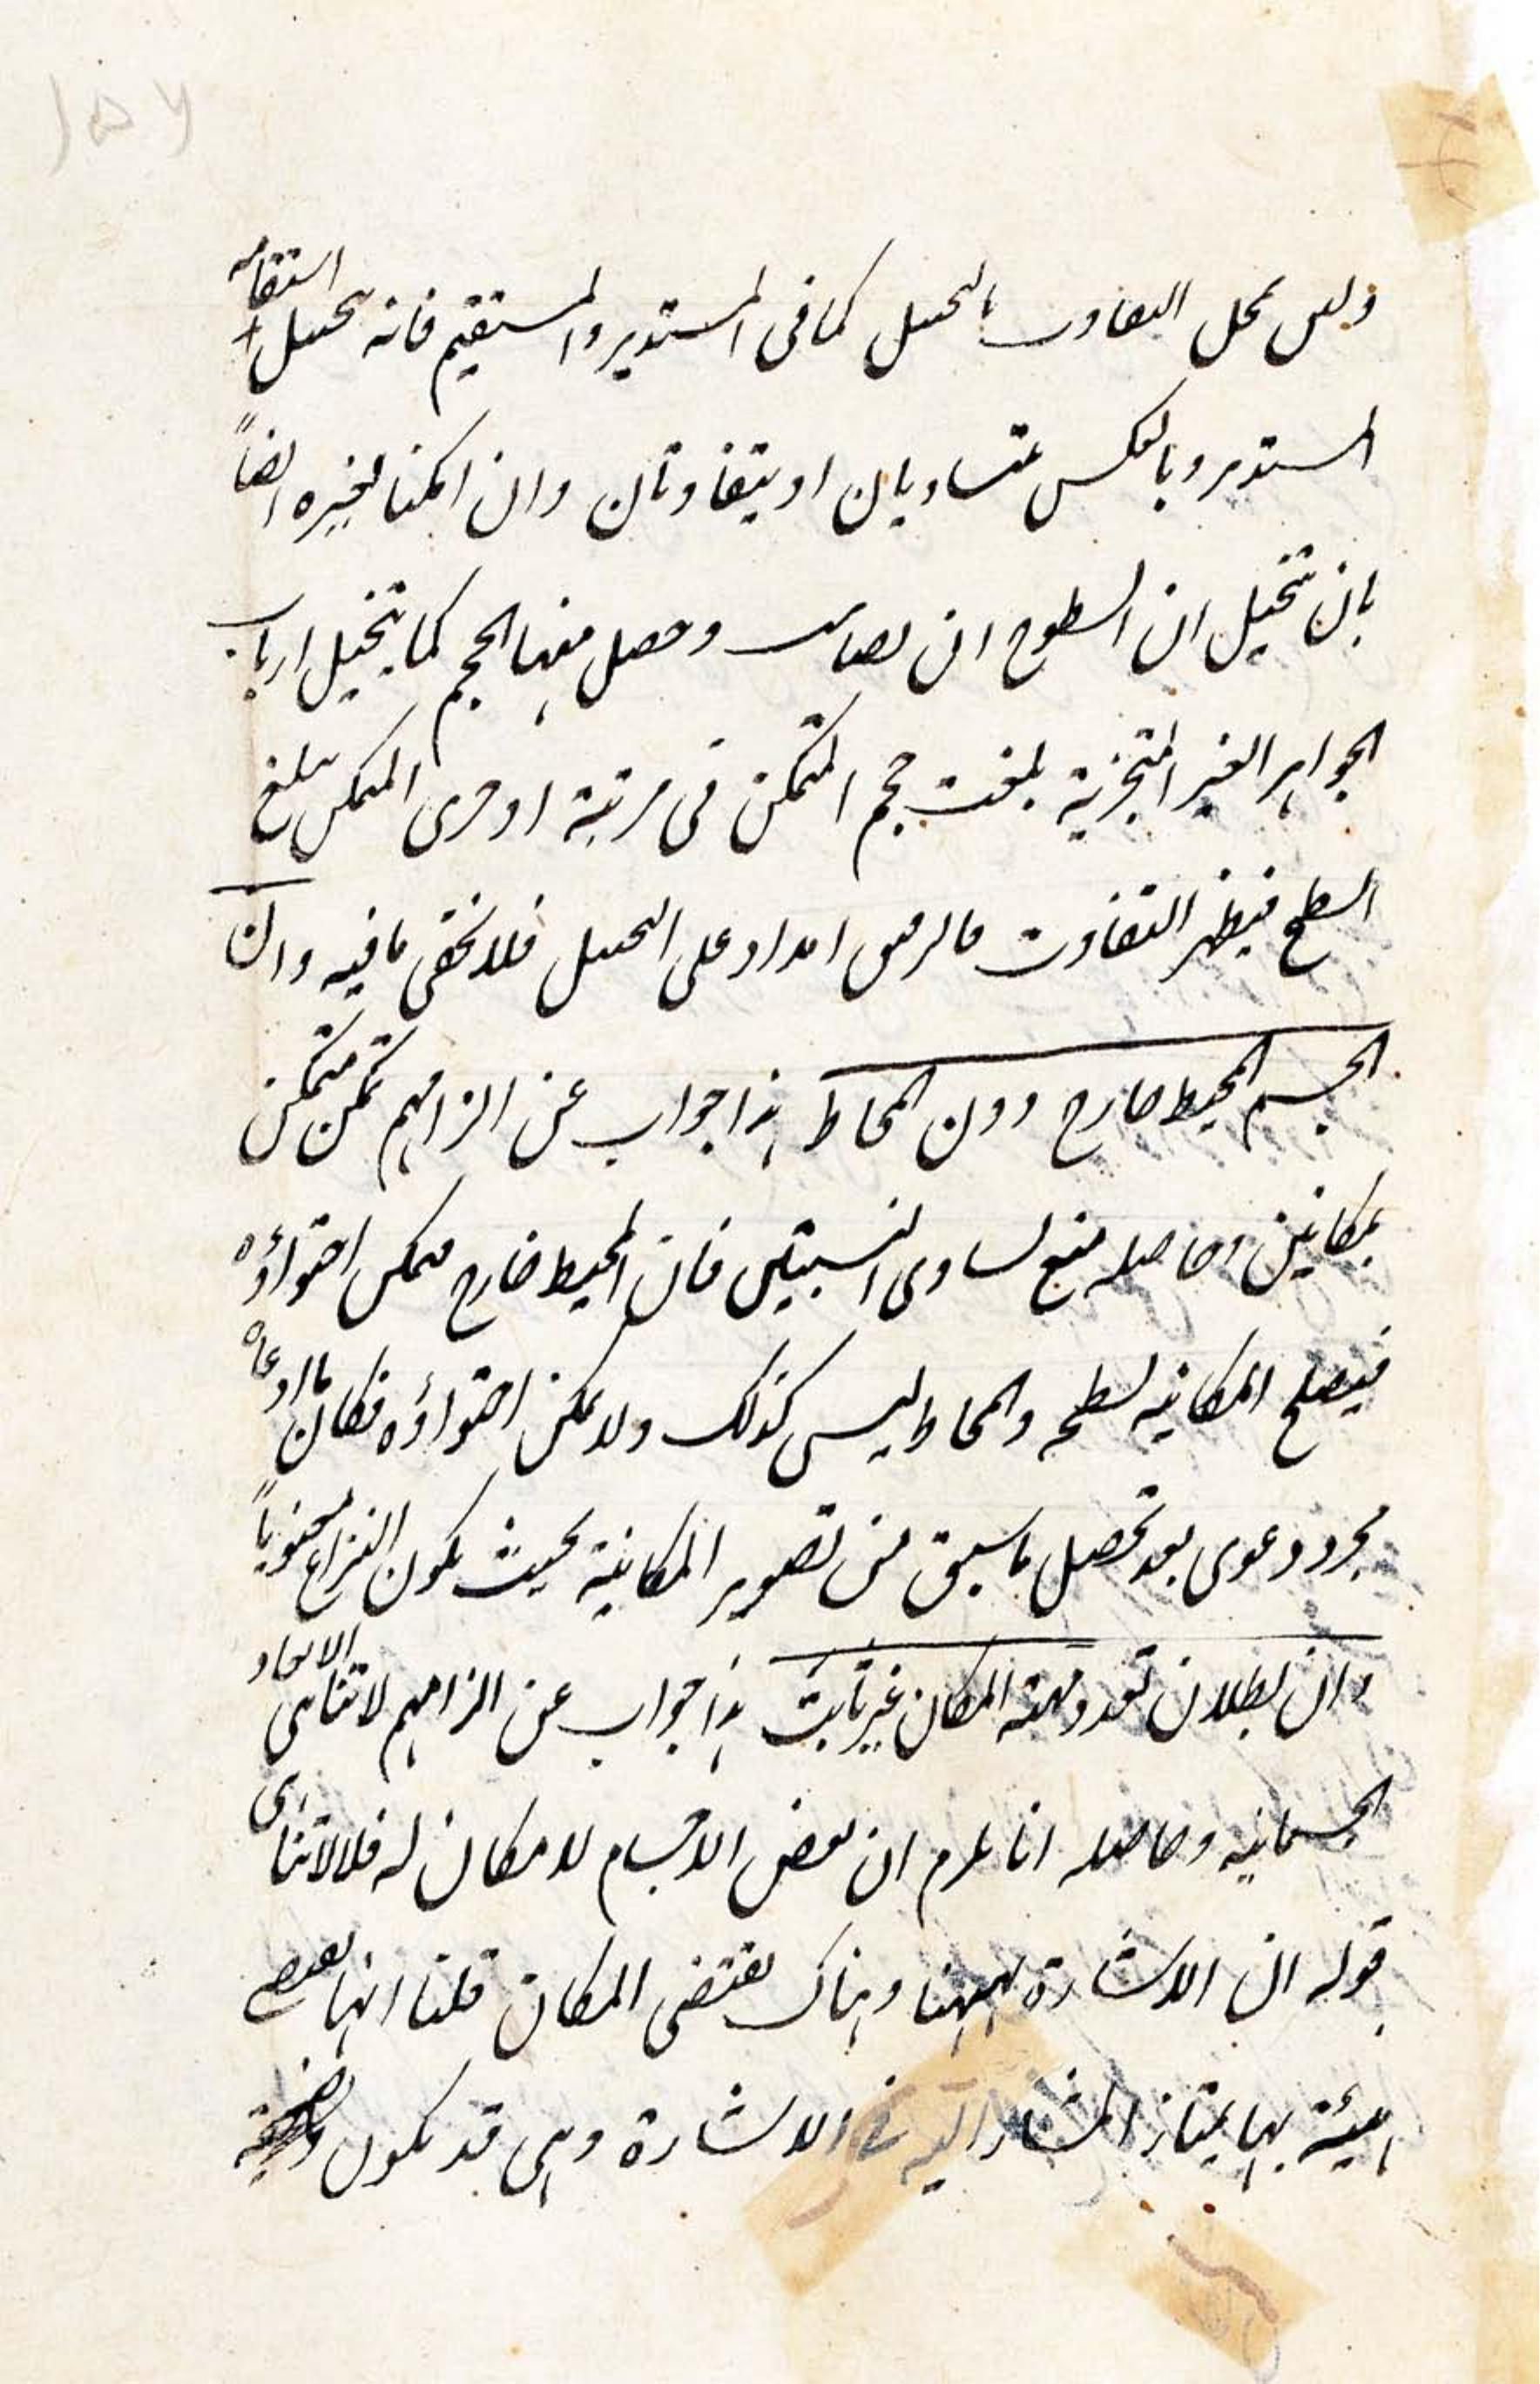 ١٥٧
وليس محل التفاوت بالتخيل كما فى المستدير والمستقيم فانه بتخيل استقامة
المستدير وبالعكس يتساويان او يتفاوتان وان امكنا لخيره ايضاً
بان تتخيل ان السطوح ان وحصل منها الحجم كما يتخيل ارباب
الجواهر الغير المتجزية بلغت حجم المتمكن فى مرتبة او جزى المتمكن بلغ
السطح فيظهر التفاوت على التخيل فلا يخفى ما فيه وان
الجسم المحيط خارج دون المحاط هذا جواب عن الزامهم تمكن متمكن
بمكانين وحاصله منع تساوى النسبتين فان المحيط خارج ممكن احتواؤه
فيصلح المكانيه لسطحه والمحاط ليس كذلك ولا يمكن احتواؤه فكان ما ادعاه
مجرد دعوى بعد تحصل ما سبق من تصوير المكانية بحيث يكون النزاع معنوياً
وان بطلان تعدد مهية المكان غير ثابت هذا جواب عن الزامهم لا تناهى الابعاد
الجسمانيه وحاصله انا نلتزم ان بعض الاجسام لا مكان له فلا لاتناهى
قوله ان الاشارة بههنا وهناك يقتضى المكان قلنا انها يقتضى
هيئة بها يمتاز المشار اليه فى الاشارة وهى قد يكون وضعية